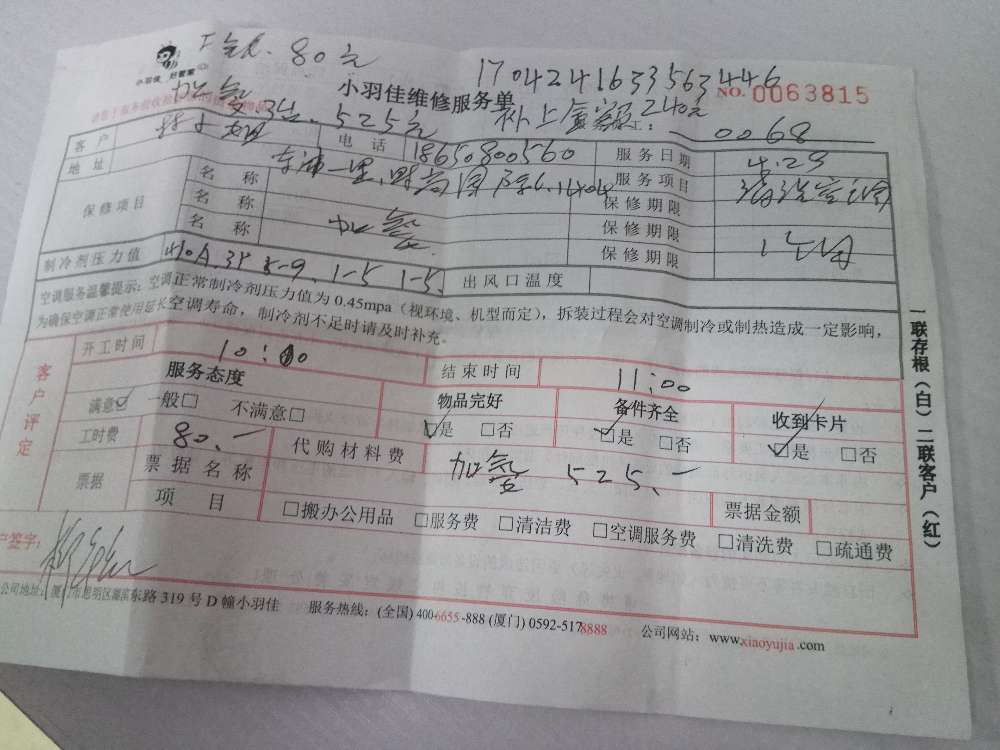 工氟.80元
17042416335634446
小羽佳 好管家
小羽佳维修服务单
NO. 0063815
加氟 525元
补上 240元
工: 0068
客户 电话 18650800560 服务日期 4.23
地址 服务项目 清洗空调
保修项目 名称 保修期限
名称 保修期限
名称 加氟 保修期限 1个月
制冷剂压力值 出风口温度
空调服务温馨提示:空调正常制冷剂压力值为0.45mpa(视环境、机型而定),拆装过程会对空调制冷或制热造成一定影响,
为确保空调正常使用延长空调寿命,制冷剂不足时请及时补充。
客户评定
开工时间 10:00 结束时间 11:00
服务态度 物品完好 备件齐全 收到卡片
满意☑ 一般□ 不满意□ ☑是 □否 ☑是 □否 ☑是 □否
工时费 80.— 代购材料费 加氟 525.—
票据 票据名称 票据金额
项目 □搬办公用品 □服务费 □清洁费 □空调服务费 □清洗费 □疏通费
户签字:
公司地址:厦门市思明区湖滨东路319号D幢小羽佳 服务热线:(全国)400-6655-888(厦门)0592-5178888 公司网站:www.xiaoyujia.com
一联存根(白)二联客户(红)